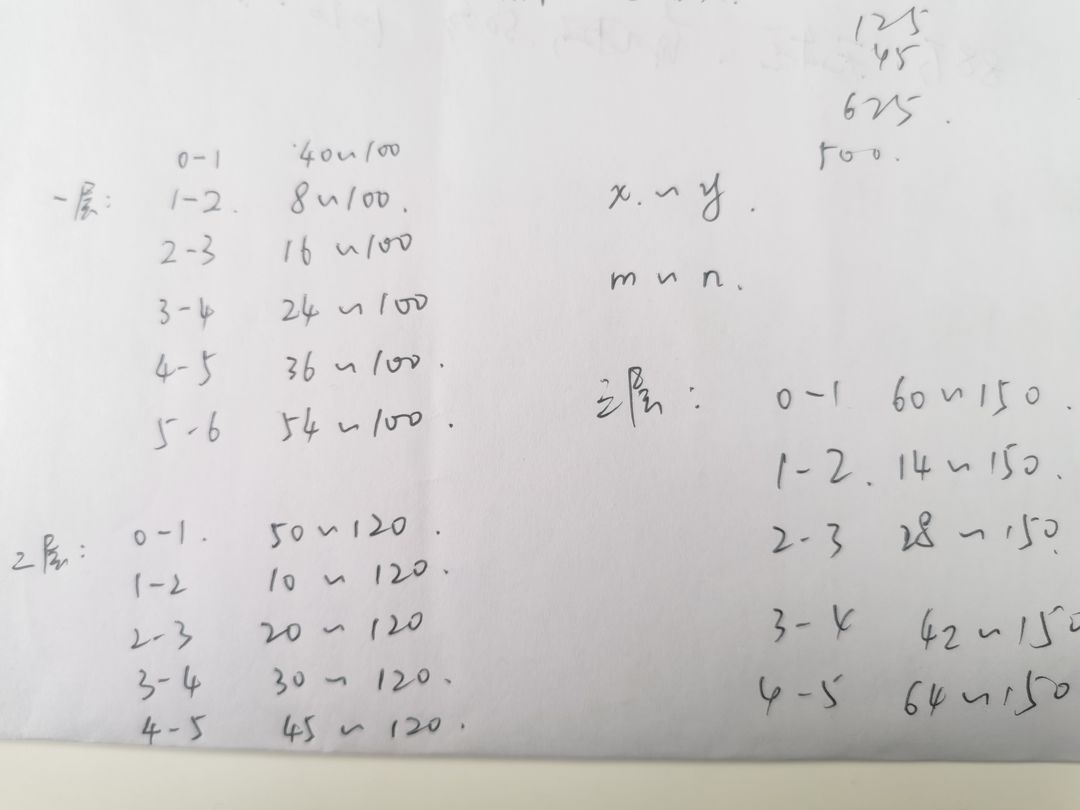 125
45
625.
500.
一层: 0-1 40~100
1-2. 8~100.
2-3 16~100
3-4 24~100
4-5 36~100.
5-6 54~100.
x.~y.
m~n.
二层: 0-1. 50~120.
1-2 10~120.
2-3 20~120
3-4 30~120.
4-5 45~120.
三层: 0-1 60~150.
1-2. 14~150.
2-3 28~150.
3-4 42~150
4-5 64~150